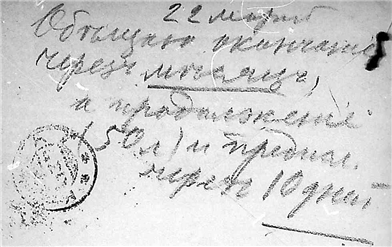 22 марта
Обѣщаю окончание
через мѣсяцъ,
а продолжение
(50 л) и предисл.
через 10 дней